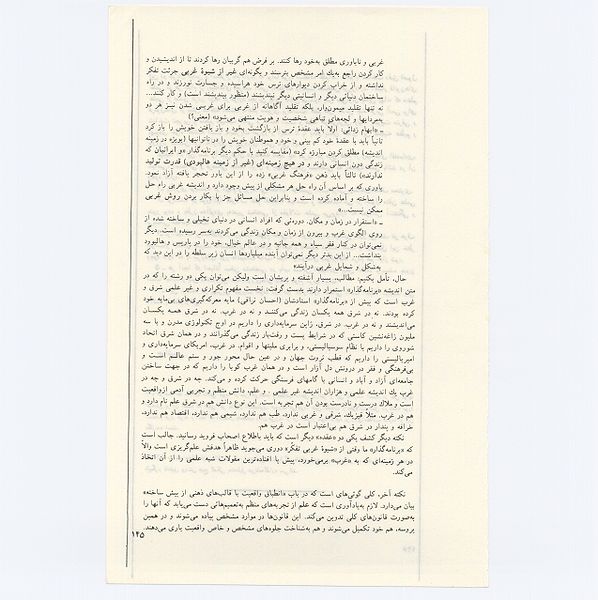 غربی و ناباوری مطلق به‌خود رها کنند. بر فرض هم گریبان رها کردند تا از اندیشیدن و
کار کردن راجع به‌یك امر مشخص بترسند و بگونه‌ای غیر از شیوهٔ غربی جرئت تفکر
نداشته و از خراب کردن دیوارهای ترس خود هراسیده و جسارت نورزند و در راه
ساختمان دنیائی دیگر و انسانیتی دیگر نیندیشند (منظور بیندیشند است) و کار کنند...
نه تنها تقلید میمون‌وار، بلکه تقلید آگاهانه از غربی برای غربی شدن نیز هر دو
به‌مردابها و لجه‌های تباهی شخصیت و هویت منتهی می‌شود» (معنی؟)
ـ «ابهام زدائی: اولا باید عقدهٔ ترس از بازگشت بخود و باز یافتن خویش را باز کرد
ثانیاً باید با عقدهٔ خود کم بینی و خود و هموطنان خویش را در ناتوانیها (بویژه در زمینه
اندیشه) مطلق کردن مبارزه کرد» (مقایسه کنید با حکم دیگر برنامه‌گذار «و ایرانیان که
زندگی دون انسانی دارند و در هیچ زمینه‌ای (غیر از زمینه هالیودی) قدرت تولید
ندارند») ثالثاً باید ذهن «فرهنگ غربی» زده را از این باور تحجر یافته آزاد نمود.
باوری که بر اساس آن راه حل هر مشکلی از پیش وجود دارد و اندیشه غربی راه حل
را ساخته و آماده کرده است و بنابراین حل مسائل جز با بکار بردن روش غربی
ممکن نیست...»
ـ «استقرار در زمان و مکان. دوره‌ئی که افراد انسانی در دنیای تخیلی و ساخته شده از
روی الگوی غرب و بیرون از زمان و مکان زندگی می‌کردند به‌سر رسیده است. دیگر
نمی‌توان در کنار فقر سیاه و همه جانبه و در عالم خیال، خود را در پاریس و هالیوود
پنداشت... از این بدتر دیگر نمی‌توان آینده میلیاردها انسان زیر سلطه را در این دید که
به‌شکل و شمایل غربی درآیند»
حال، تأمل بکنیم: مطالب، بسیار آشفته و پریشان است ولیکن می‌توان یکی دو رشته را که در
متن اندیشه «برنامه‌گذار» استمرار دارند بدست گرفت: نخست مفهوم تکراری و غیر علمی شرق و
غرب است که پیش از «برنامه‌گذار» استادشان (احسان نراقی) مایه معرکه‌گیری‌های بی‌مایه خود
کرده بودند. نه در شرق همه یکسان زندگی می‌کنند و نه در غرب. نه در شرق همه یکسان
می‌اندیشند و نه در غرب. در شرق، ژاپن سرمایه‌داری را داریم در اوج تکنولوژی مدرن و با سه
ملیون زاغه‌نشین کاستی که در شرایط پست و رقت‌بار زندگی می‌گذرانند و در همان شرق اتحاد
شوروی را داریم با نظام سوسیالیستی، و برابری ملیتها و اقوام. در غرب، امریکای سرمایه‌داری و
امپریالیستی را داریم که قطب ثروت جهان و در عین حال محور جور و ستم عالم است و
بی‌فرهنگی و فقر در درونش دل آزار است و در همان غرب کوبا را داریم که در جهت ساختن
جامعه‌ای آزاد و آباد و انسانی با گامهای فرسنگی حرکت کرده و می‌کند. چه در شرق و چه در
غرب یك اندیشه علمی و هزاران اندیشه غیر علمی. و علم، دانش منظم و تجربی آدمی ازواقعیت
است و ملاك درست و نادرست بودن آن هم تجربه است. این نوع دانش هم در شرق علم نام دارد و
هم در غرب. مثلاً فیزیك، شرقی و غربی ندارد، طب هم ندارد، شیمی هم ندارد، اقتصاد هم ندارد،
خرافه و پندار در شرق هم بی‌اعتبار است در غرب هم.
نکته دیگر کشف یکی دو «عقده» دیگر است که باید باطلاع اصحاب فروید رسانید. جالب است
که «برنامه‌گذار» ما وقتی از «شیوهٔ غربی تفکر» دوری می‌جوید ظاهراً هدفش علم‌گریزی است والا
در هر زمینه‌ای که به «غرب» برمی‌خورد، پیش پا افتاده‌ترین مقولات شبه علمی را از آن اتخاذ
می‌کند.
نکته آخر، کلی گوئی‌های است که در باب «انطباق واقعیت با قالب‌های ذهنی از پیش ساخته»
بیان می‌دارد. لازم به‌یادآوری است که علم از تجربه‌های منظم به‌تعمیم‌هائی دست می‌یابد که آنها را
به‌صورت قانون‌های کلی تدوین می‌کند. این قانون‌ها در موارد مشخص پیاده می‌شوند و در همین
پروسه، هم خود تکمیل می‌شوند و هم به‌شناخت جلوه‌های مشخص و خاص واقعیت یاری می‌دهند.
۱۲۵